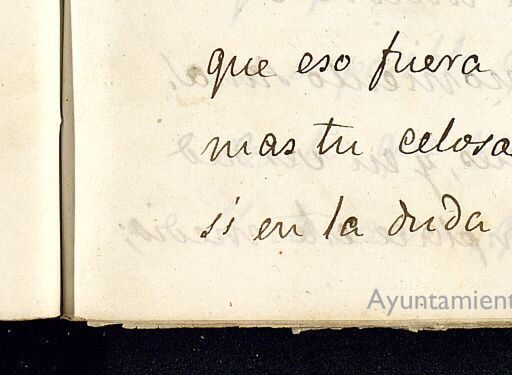 que eso fuera
mas tu celosa
si en la duda
Ayuntamient